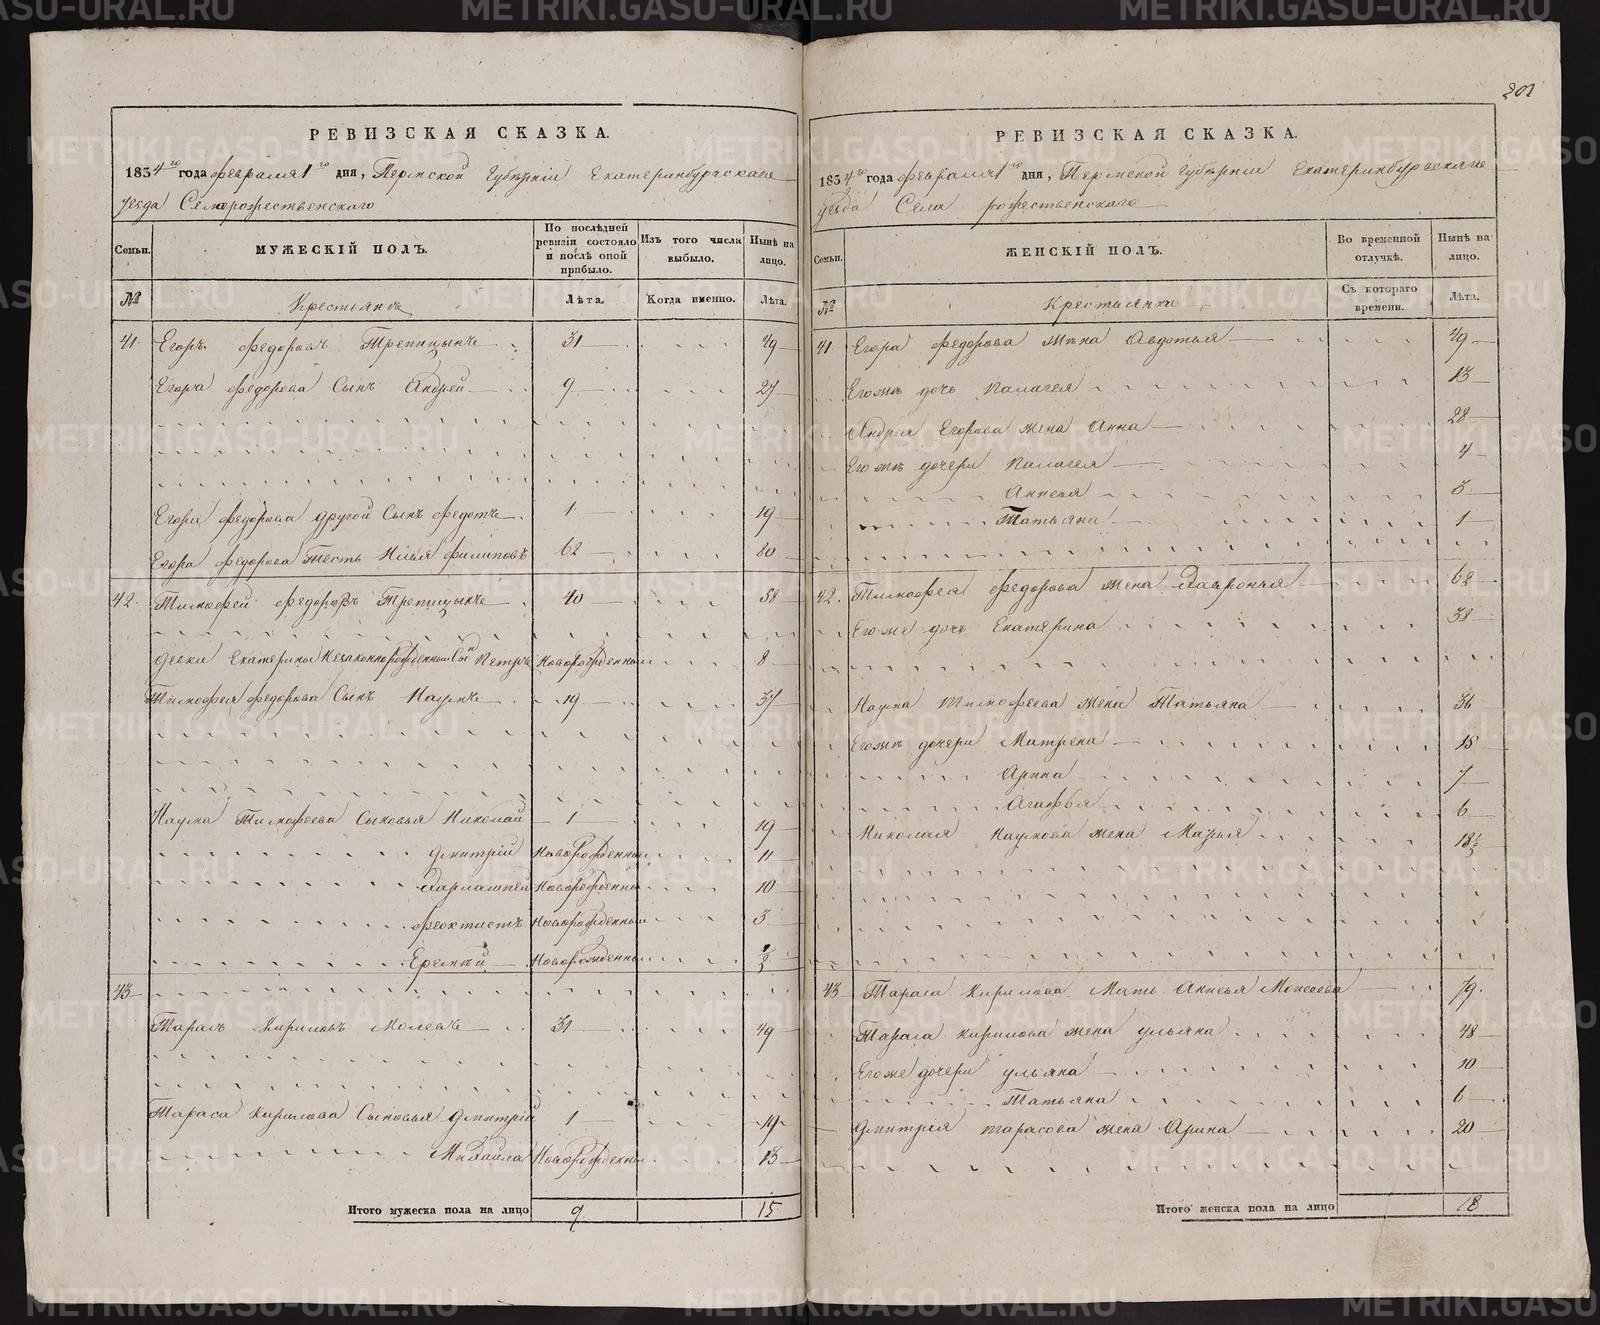 201
РЕВИЗСКАЯ СКАЗКА.
1834го года февраля 1го дня, Пермской Губернiи Екатеринбургскаго
уезда Села рожественскаго
Семьи.
МУЖЕСКIЙ ПОЛЪ.
По послѣдней ревизiи состояло и послѣ оной прибыло.
Изъ того числа выбыло.
Нынѣ на лицо.
№
Крестьяне
Лѣта.
Когда именно.
Лѣта.
41. Егоръ федоровъ Трепицынъ 31 49
Егора федорова Сынъ Андрей 9 27
Егора федорова другой Сынъ федотъ 1 19
Егора федорова Тесть Илья филиповъ 62 80
42. Тимофей федоровъ Трепицынъ 40 58
девки Екатерины Незаконнорожденный Сынъ Петръ Новорожденный 8
Тимофея федорова Сынъ Наумъ 19 37
Наума Тимофеева Сыновья Николай 1 19
дмитрiй Новорожденный 11
Варлампей Новорожденный 10
феоктистъ Новорожденный 3
Еремѣй Новорожденный ½
43
Тарасъ Кириловъ 31 49
Тараса Кирилова Сыновья дмитрiй 1 19
Михайла Новорожденный 13
Итого мужеска пола на лицо 9 15
РЕВИЗСКАЯ СКАЗКА.
1834го года февраля 1го дня, Пермской Губернiи Екатеринбургскаго
уезда Села рожественскаго
Семьи.
ЖЕНСКIЙ ПОЛЪ.
Во временной отлучкѣ.
Нынѣ на лицо.
№
Крестьянки
Съ котораго времени.
Лѣта.
41 Егора федорова жена Авдотья 49
Егожъ дочь Палагея 13
Андрея Егорова жена Анна 28
Егожъ дочери Палагея 4
Аксья 3
Татьяна 1
42. Тимофея федорова жена Хавронья 62
Егоже дочь Екатерина 38
Наума Тимофеева жена Татьяна 36
Егожъ дочери Матрена 15
Арина 7
Агафья 6
Николая Наумова жена Марья 18½
43 Тараса Кирилова Мать Аксья Моисеева 79
Тараса Кирилова жена ульяна 48
Егоже дочери ульяна 10
Татьяна 6
дмитрiя тарасова жена Арина 20
Итого женска пола на лицо 18
METRIKI.GASO-URAL.RU